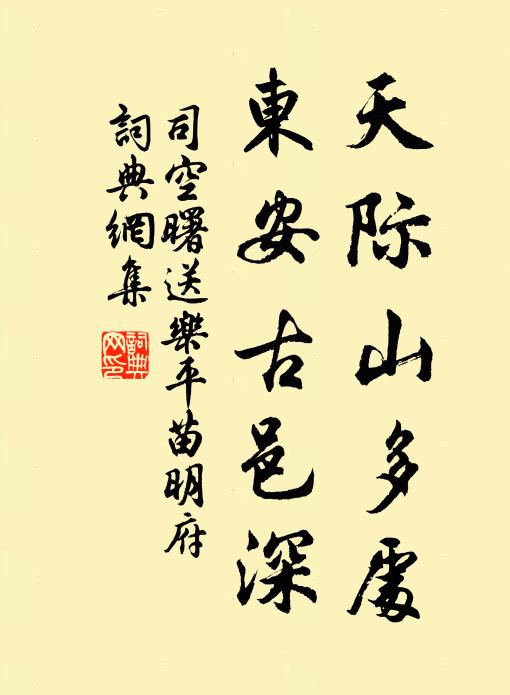 天际山多處
東安古邑深
司空曙送樂平苗明府
詞典網集
詞典网印